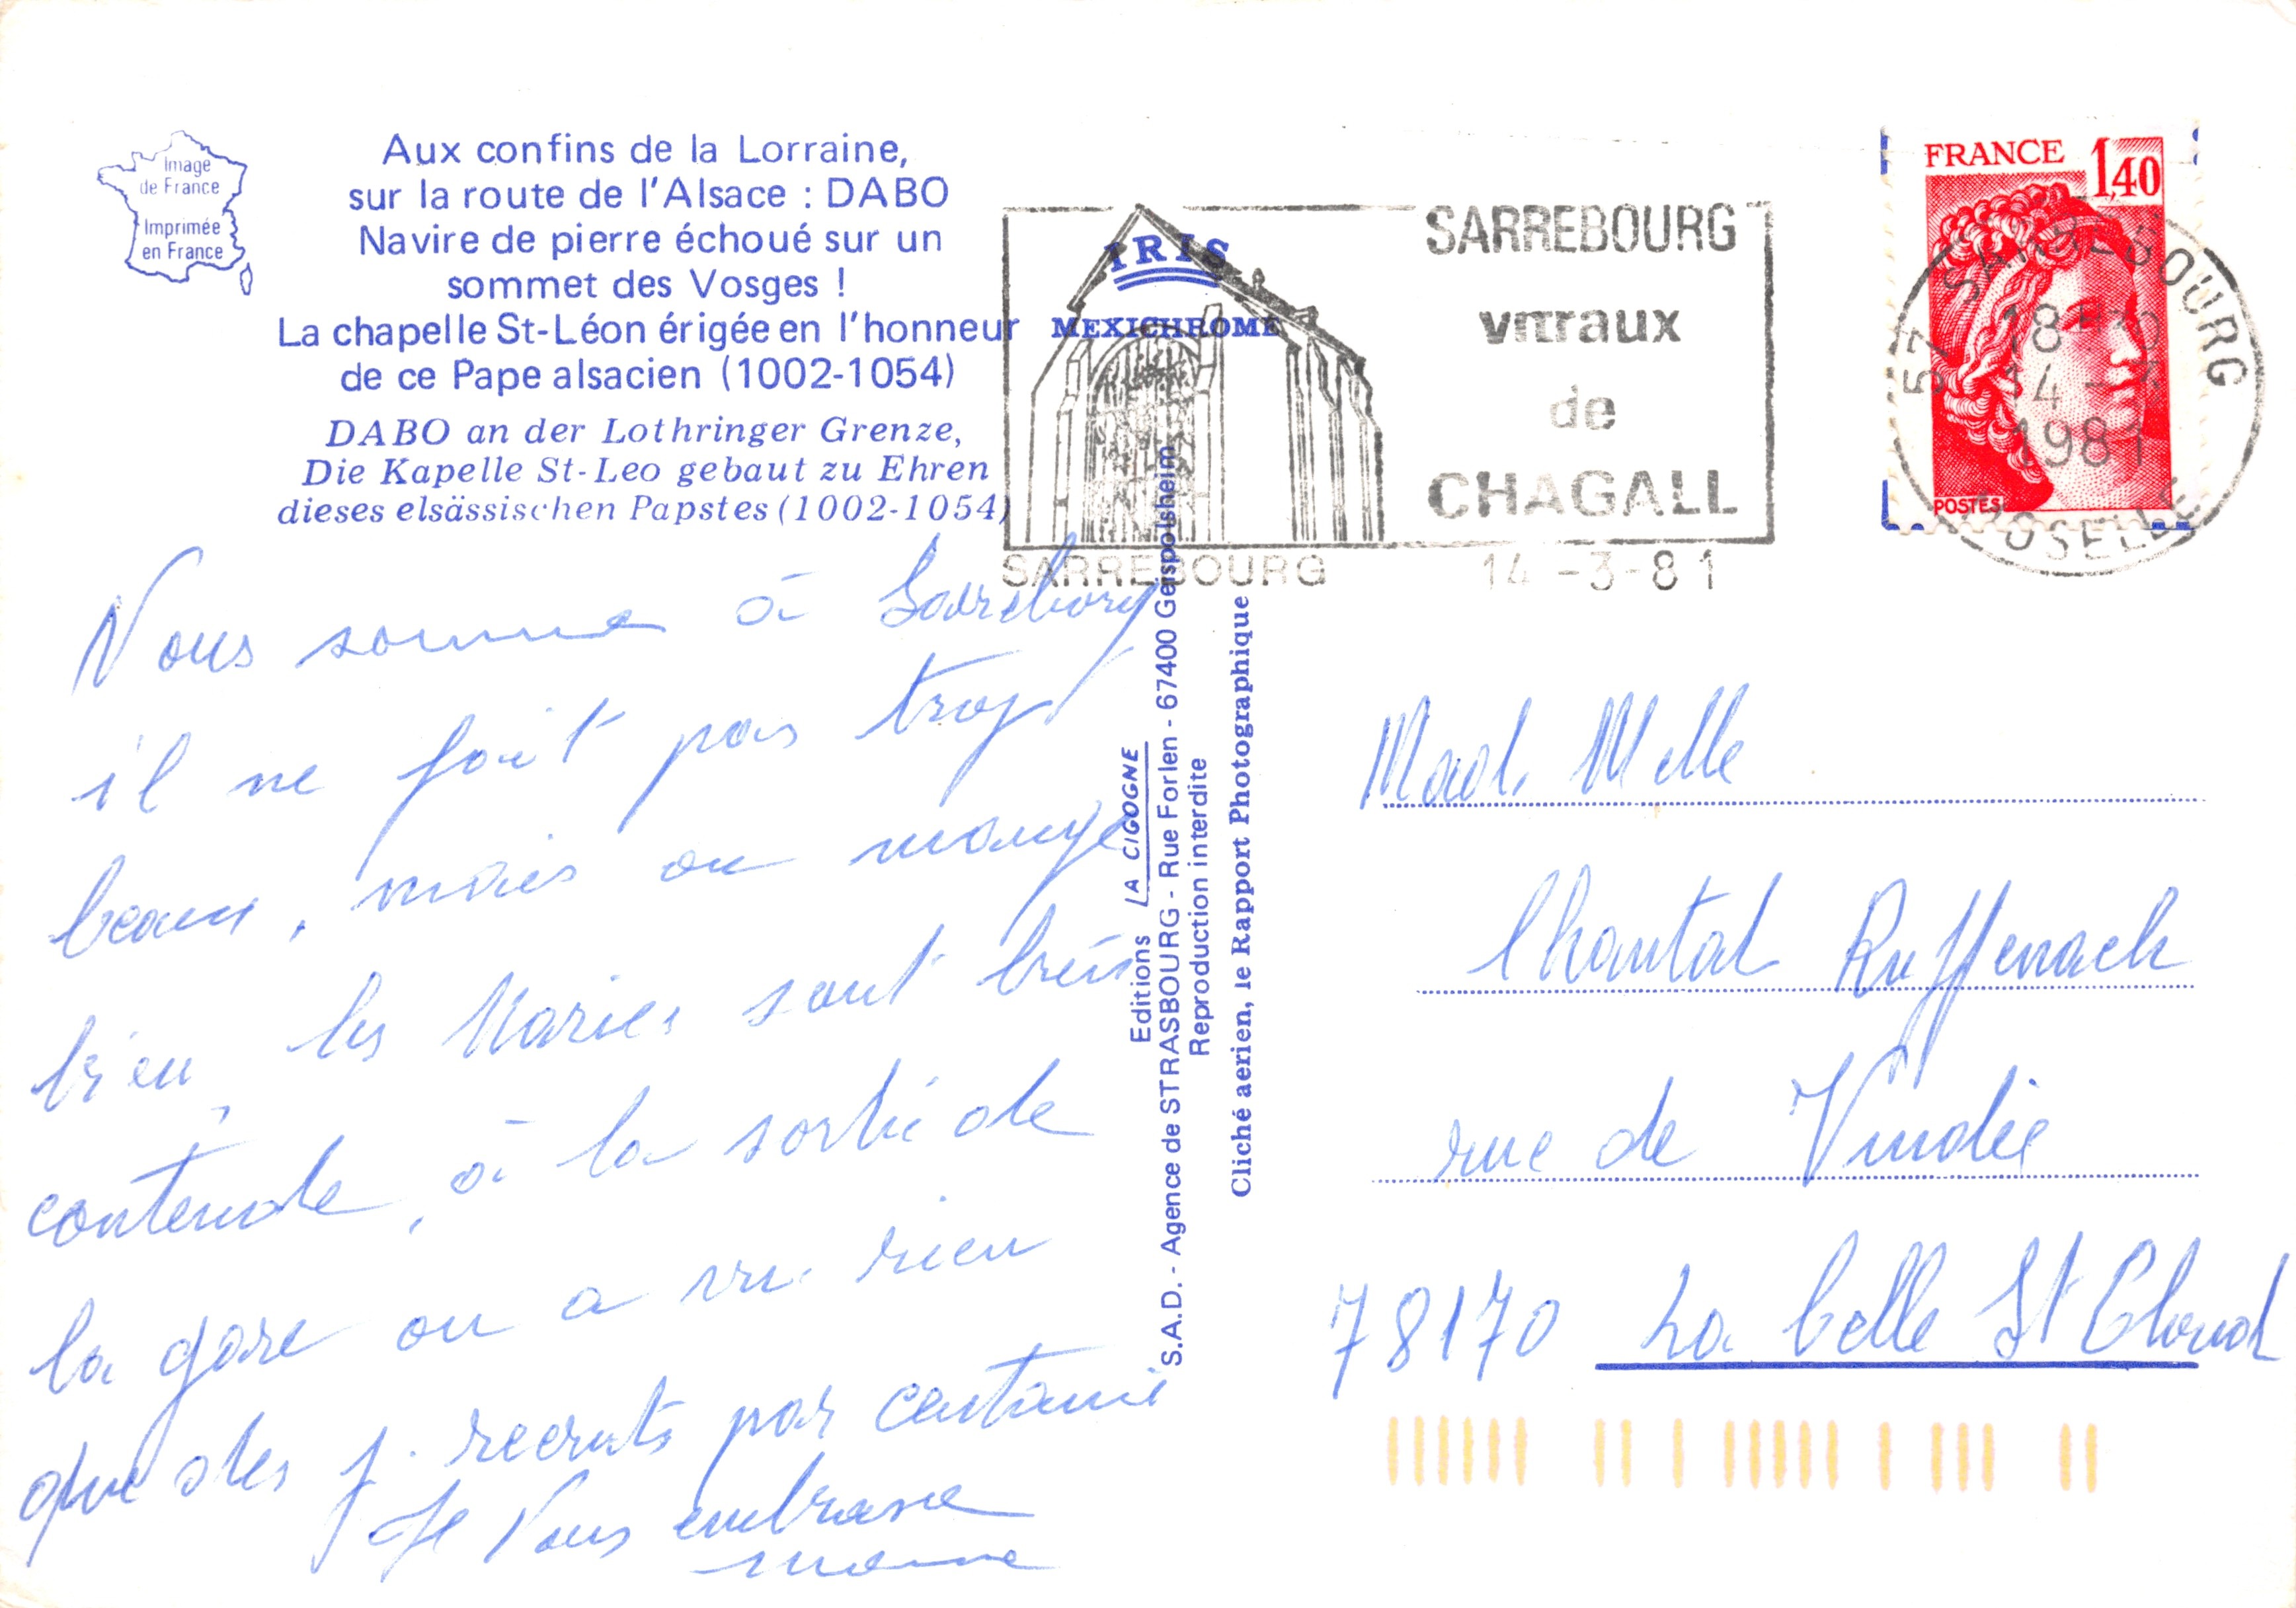 Image
de France
Imprimée
en France
Aux confins de la Lorraine,
sur la route de l'Alsace : DABO
Navire de pierre échoué sur un
sommet des Vosges !
La chapelle St-Léon érigée en l'honneur
de ce Pape alsacien (1002-1054)
DABO an der Lothringer Grenze,
Die Kapelle St-Leo gebaut zu Ehren
dieses elsässischen Papstes (1002-1054)
IRIS
MEXICHROME
SARREBOURG
vitraux
de
CHAGALL
SARREBOURG 14-3-81
FRANCE 1,40
POSTES
57 SARREBOURG
18H
14-3
1981
MOSELLE
Nous somme à Sarrebourg
il ne fait pas trop
beau, mais on mange
bien, les Maries sont très
contende, à la sortie de
la gare on a vu rien
que des j. recruts par centaine
Je Vous embrasse
Editions LA CIGOGNE
S.A.D. - Agence de STRASBOURG - Rue Forlen - 67400 Geispolsheim
Reproduction interdite
Cliché aerien, le Rapport Photographique
Mad. Melle
Chantal Ruffenach
rue de
78170 La Celle St Cloud